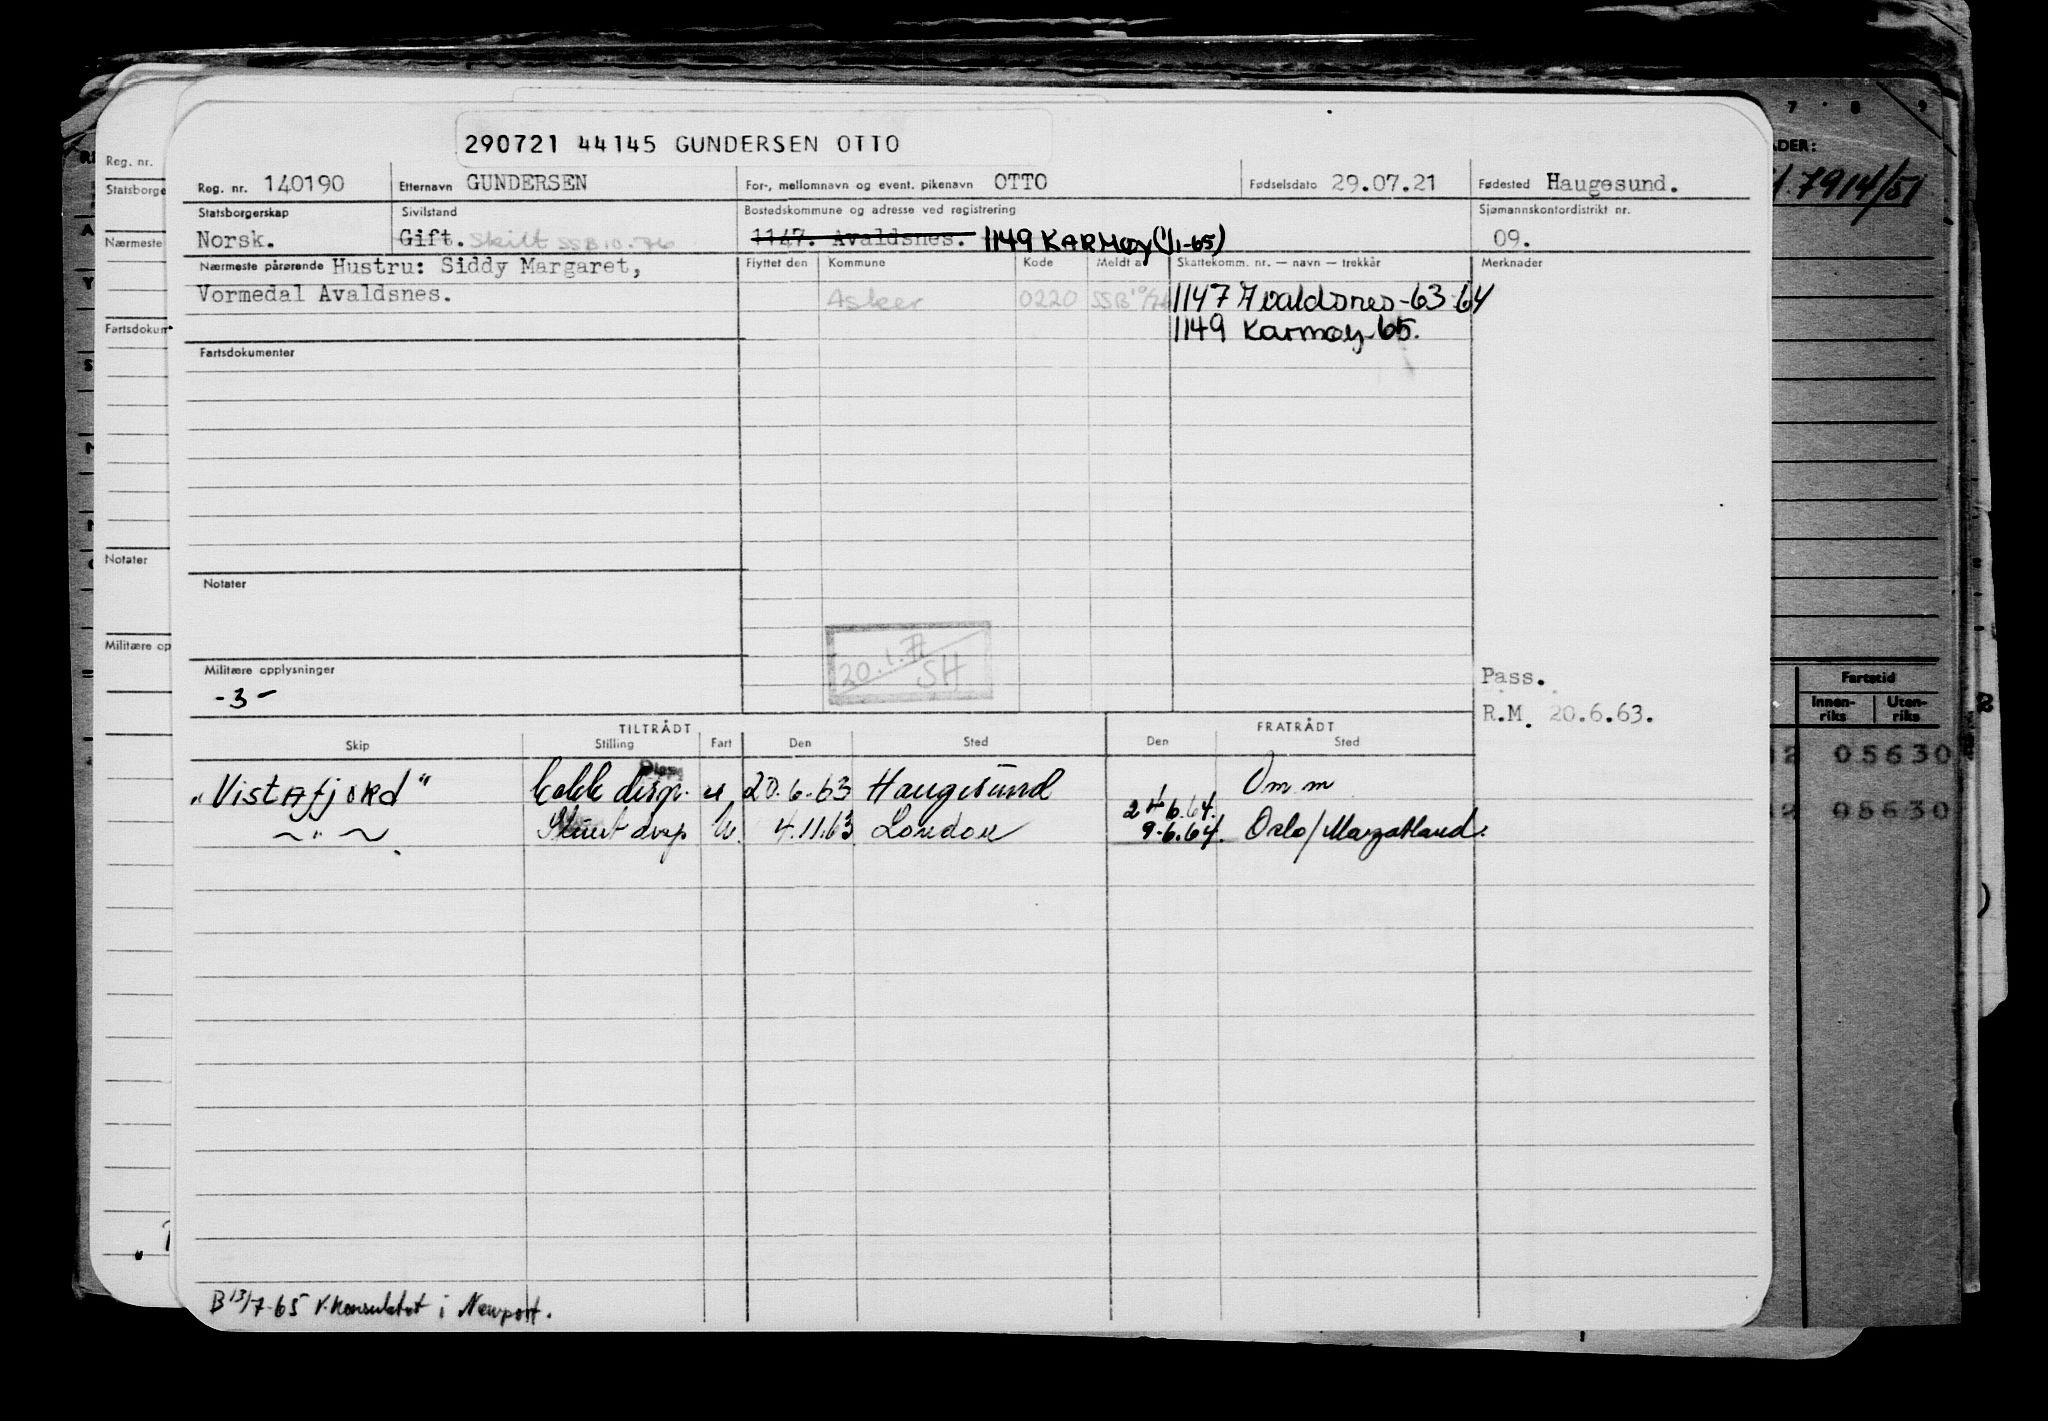 290721 44145 GUNDERSEN OTTO
Reg. nr. 140190 Etternavn GUNDERSEN For-, mellomnavn og event. pikenavn OTTO Fødselsdato 29.07.21 Fødested Haugesund.
Statsborgerskap Sivilstand Bostedskommune og adresse ved registrering Sjømannskontordistrikt nr.
Norsk. Gift. Skilt SSB 10.76 1147. Avaldsnes. 1149 KARMØY (1/1-65) 09.
Nærmeste pårørende Hustru: Siddy Margaret, Flyttet den Kommune Kode Meldt av Skattekomm. nr. — navn — trekkår Merknader
Vormedal Avaldsnes. Asker 0220 SSB 10/76 1147 Avaldsnes-63-64
1149 Karmøy-65.
Fartsdokumenter
Notater
20.1.77
SH
Militære opplysninger
-3-
Pass.
R.M. 20.6.63.
TILTRÅDT FRATRÅDT
Skip Stilling Fart Den Sted Den Sted
„Vistafjord" kokk disp. u 20.6.63 Haugesund Om m
24.6.64.
~ " ~ Stuert disp U. 4.11.63 London 9.6.64. Oslo/
B 13/7-65 V.Konsulatet i Newport.
Reg. nr.
Statsborge
Nærmeste
Fartsdokum
Notater
Militære op
7 8 9
ADER:
7914/51
Fartstid
Innen-riks Uten-riks
2 05630
05630